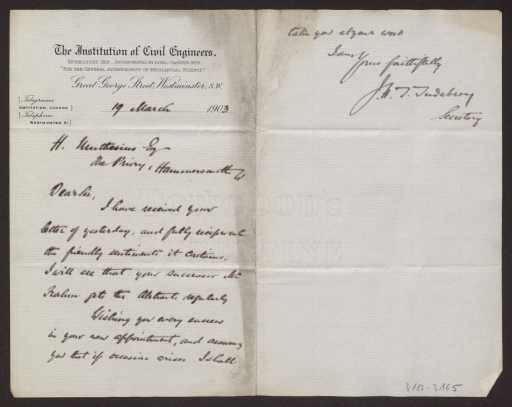 The Institution of Civil Engineers.
ESTABLISHED 1818. INCORPORATED BY ROYAL CHARTER 1828.
"FOR THE GENERAL ADVANCEMENT OF MECHANICAL SCIENCE."
Great George Street, Westminster, S.W.
Telegrams
INSTITUTION, LONDON
Telephone
WESTMINSTER 51
19 March 1903
H. Muthesius Esq
The Priory, Hammersmith W
Dear Sir,
I have received your
letter of yesterday, and fully reciprocate
the friendly sentiments it contains.
I will see that your successor Mr
gets the Abstracts regularly
Wishing you every success
in your new appointment, and assuring
you that if occasion arises I shall
take you at your word
I am
Yours faithfully
J. H. T. Tudsbery
Secretary